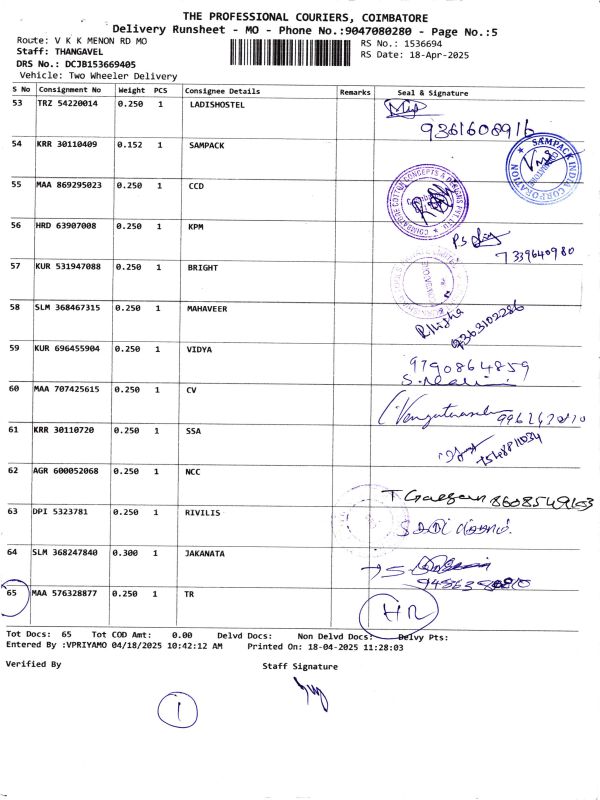 THE PROFESSIONAL COURIERS, COIMBATORE
Delivery Runsheet - MO - Phone No.:9047080280 - Page No.:5
Route: V K K MENON RD MO
RS No.: 1536694
Staff: THANGAVEL
RS Date: 18-Apr-2025
DRS No.: DCJB153669405
Vehicle: Two Wheeler Delivery
S No Consignment No Weight PCS Consignee Details Remarks Seal & Signature
53 TRZ 54220014 0.250 1 LADISHOSTEL
9361608916
54 KRR 30110409 0.152 1 SAMPACK
SAMPACK INDIA CORPORATION
55 MAA 869295023 0.250 1 CCD
56 HRD 63907008 0.250 1 KPM
7339640980
57 KUR 531947088 0.250 1 BRIGHT
58 SLM 368467315 0.250 1 MAHAVEER
9363102286
59 KUR 696455904 0.250 1 VIDYA
9790864859
60 MAA 707425615 0.250 1 CV
61 KRR 30110720 0.250 1 SSA
62 AGR 600052068 0.250 1 NCC
8608549163
63 DPI 5323781 0.250 1 RIVILIS
64 SLM 368247840 0.300 1 JAKANATA
65 MAA 576328877 0.250 1 TR
HR
Tot Docs: 65 Tot COD Amt: 0.00 Delvd Docs: Non Delvd Docs: Delvy Pts:
Entered By :VPRIYAMO 04/18/2025 10:42:12 AM Printed On: 18-04-2025 11:28:03
Verified By Staff Signature
1